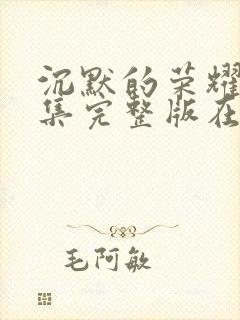 沉默的荣耀
集完整版在
毛阿敏